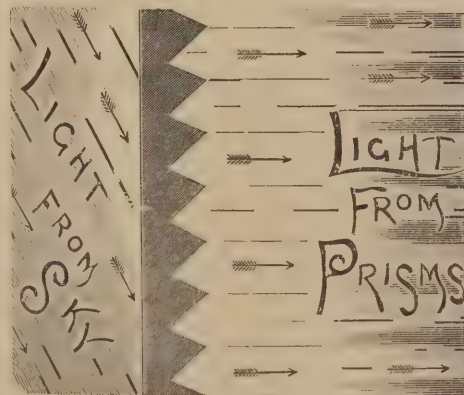 LIGHT
FROM
SKY
LIGHT
FROM
PRISMS